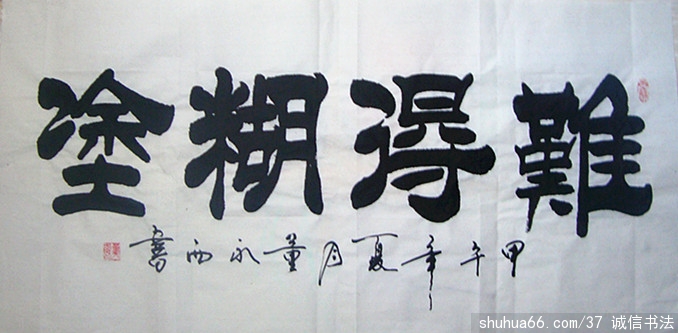 難得糊塗
甲午年夏月董永西書
shuhua66.com/37 诚信书法